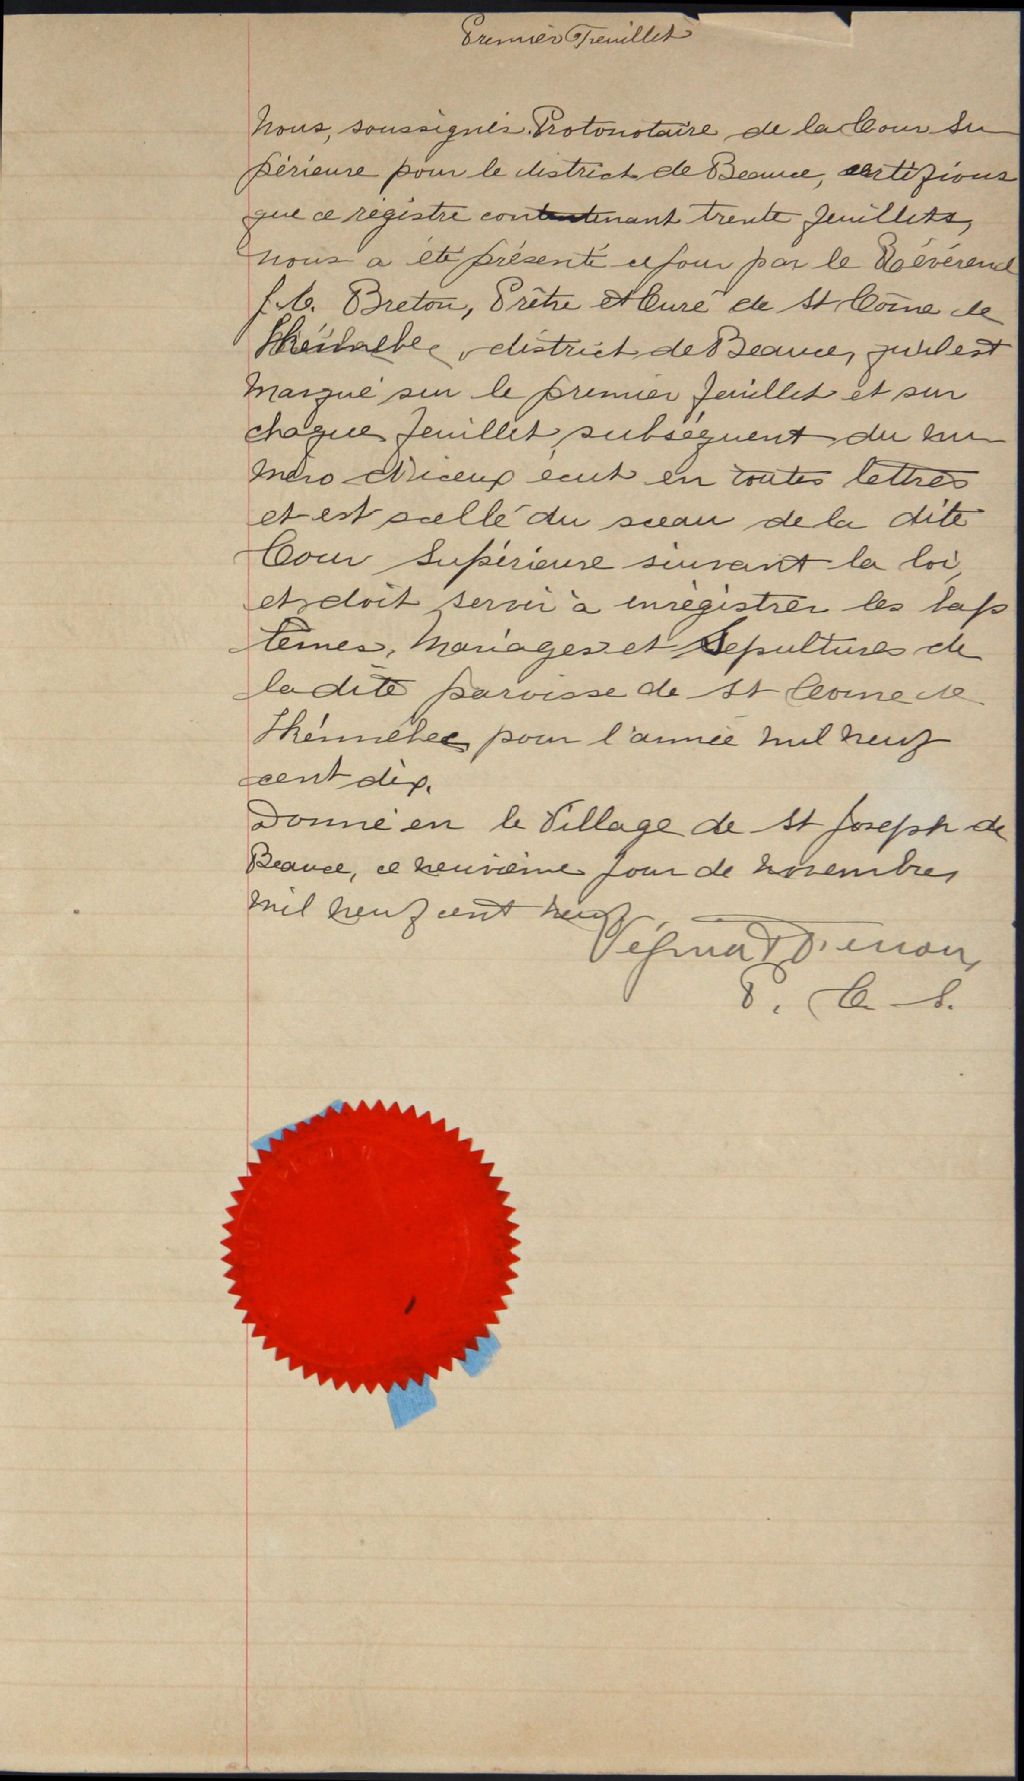 Premier Feuillet
Nous, soussignés Protonotaire de la Cour Su
périeure pour le district de Beauce, certifions
que ce régistre contenant trente feuillets,
nous a été présenté ce jour par le Révérend
J. C. Breton, Prêtre et Curé de St Côme de
district de Beauce, qu'il est
Marqué sur le premier feuillet et sur
chaque feuillet subséquent du nu
méro écrit en toutes lettres
et est scellé du sceau de la dite
Cour Supérieure suivant la loi,
et doit servir à enrégistrer les bap
têmes, Mariages et Sepultures de
la dite paroisse de St Come de
Khénnébec pour l'année mil neuf
cent dix.
Donné en le Village de St Joseph de
Beauce, ce neuvième jour de novembre
mil neuf cent neuf.
P. C. S.